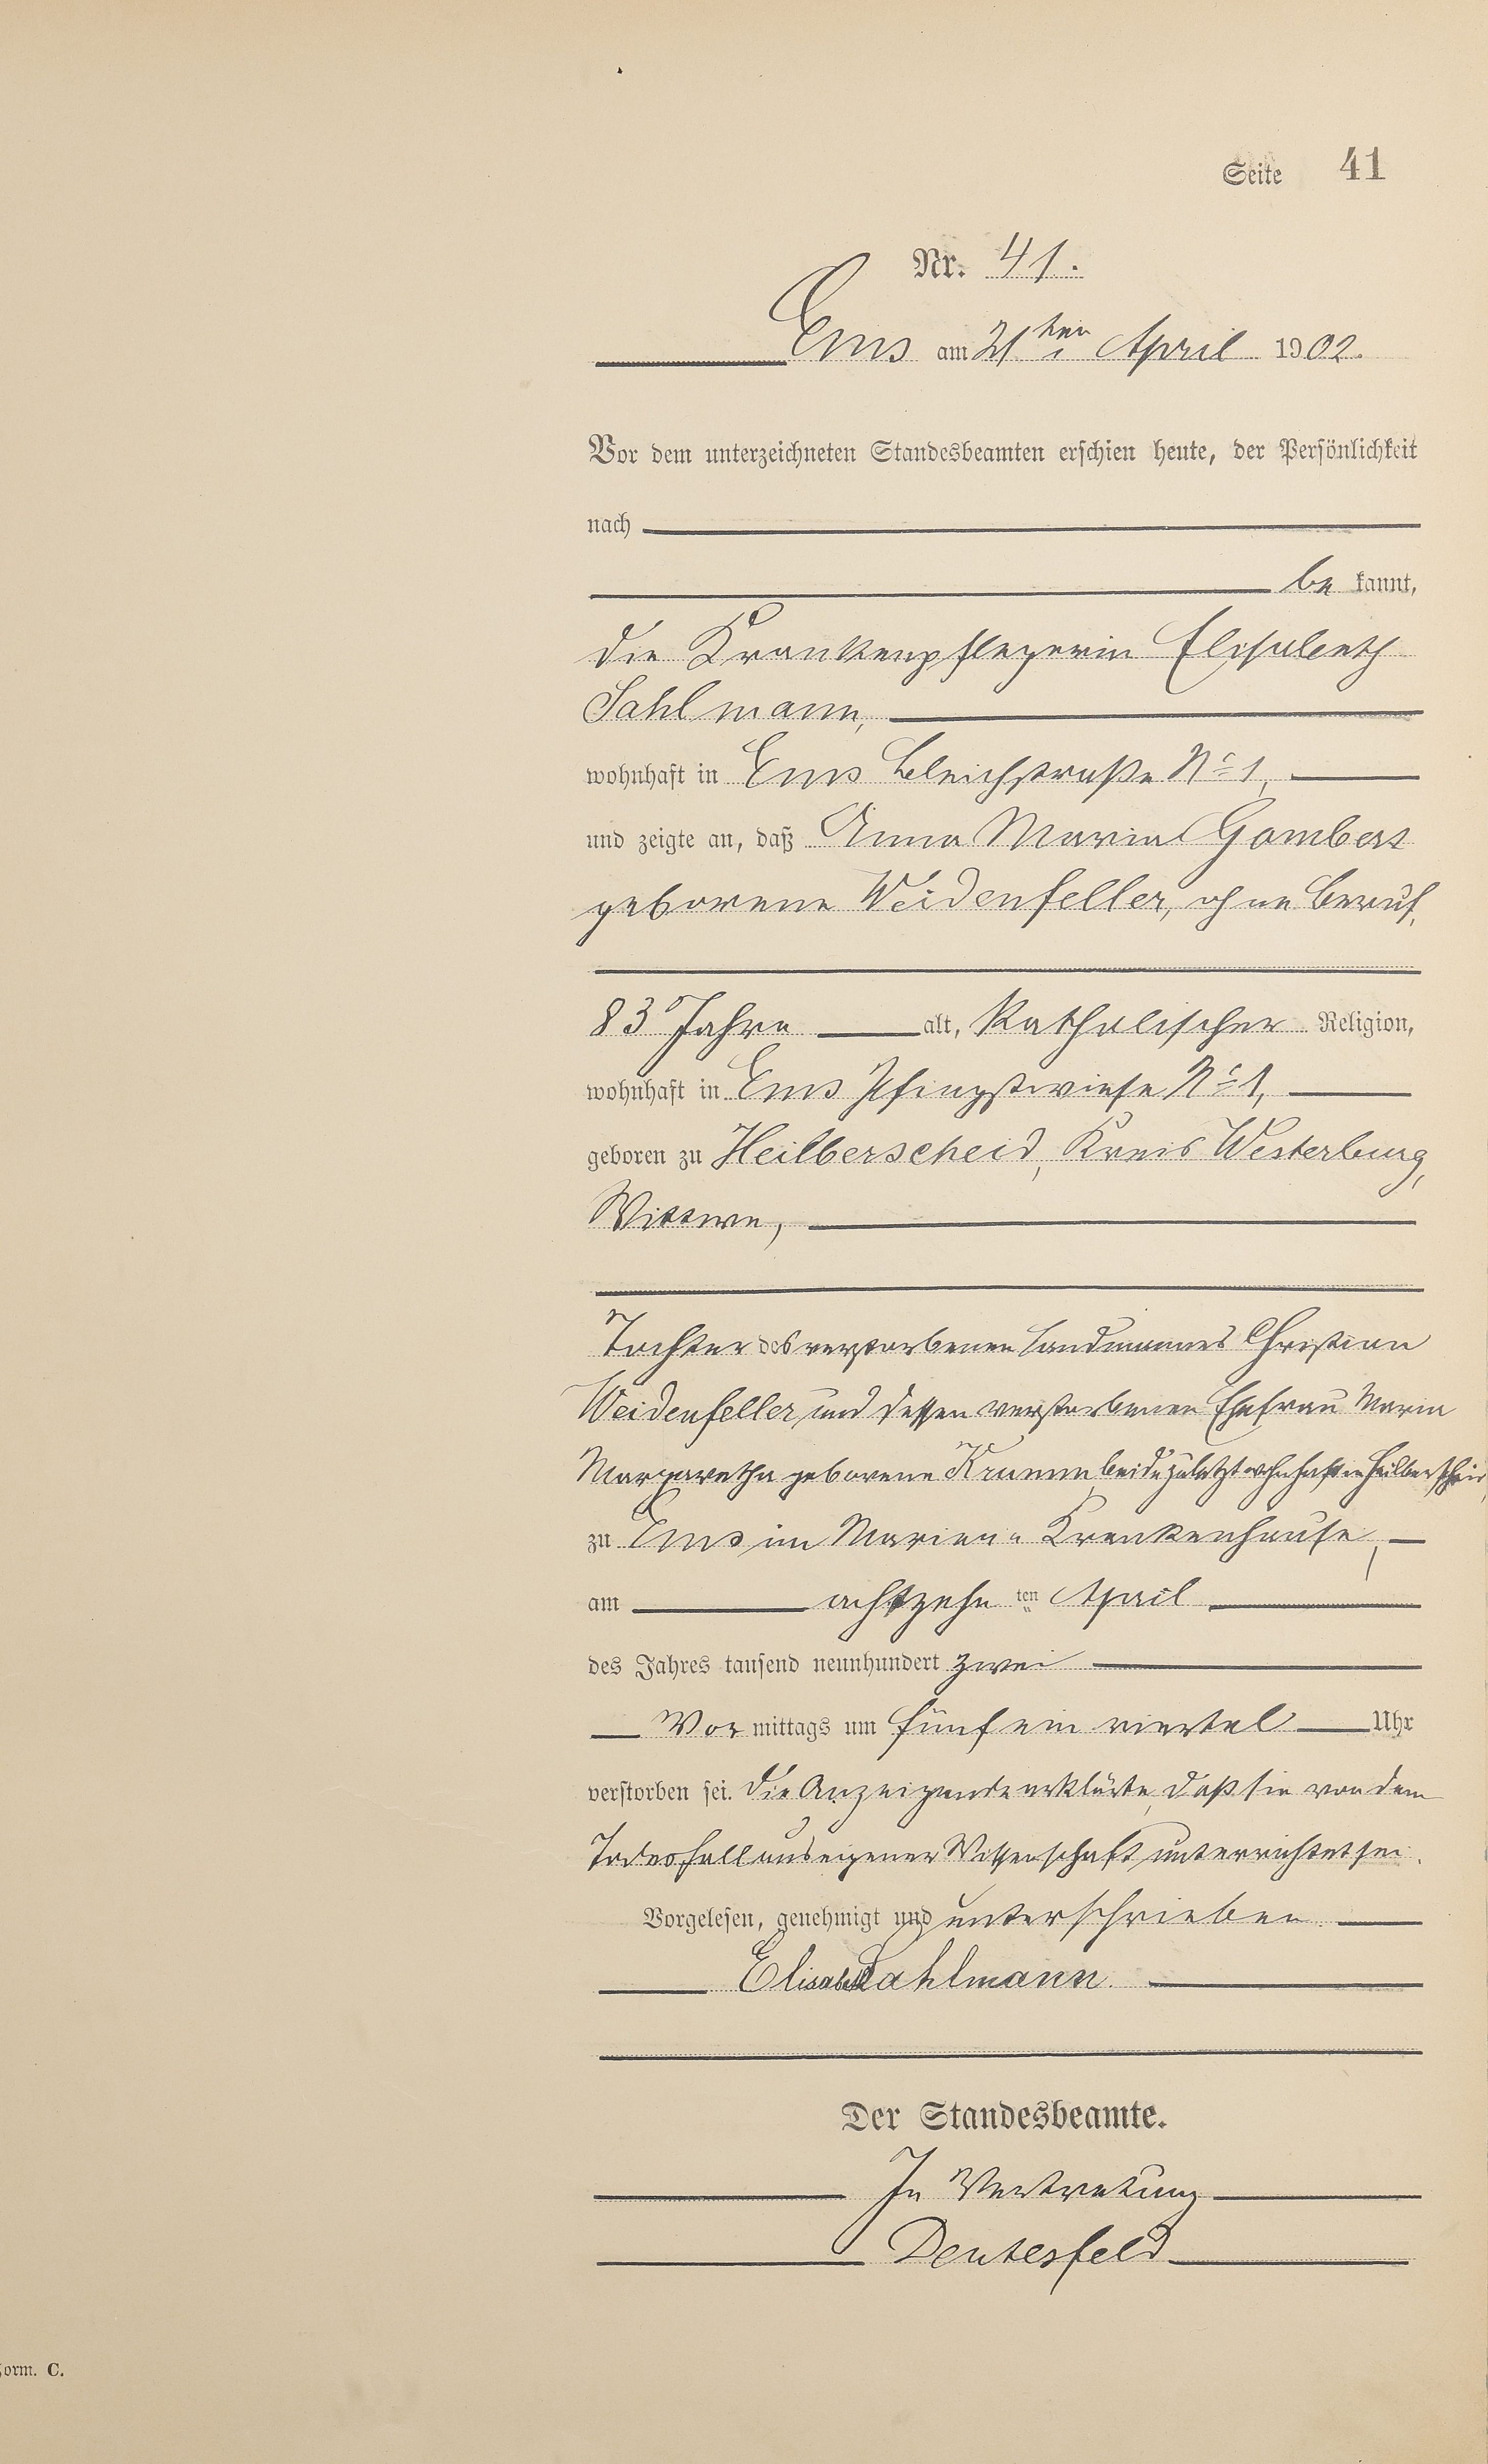 Seite 41
Nr. 41.
Ems am 21ten April 1902.
Vor dem unterzeichneten Standesbeamten erschien heute, der Persönlichkeit
nach
be kannt,
die Krankenpflegerin Elisabeth
Sahlmann,
wohnhaft in Ems Bleichstraße No 1,
und zeigte an, daß Anna Maria Gombert
geborene Weidenfeller, ohne Beruf,
83 Jahre alt, katholischer Religion,
wohnhaft in Ems Pfingstwiese No 1,
geboren zu Heilberscheid, Kreis Westerburg,
Wittwe,
Tochter des verstorbenen Landmannes Christian
Weidenfeller und dessen verstorbenen Ehefrau Maria
Margaretha geborene Krumm beide zuletzt wohnhaft in Heilberscheid,
zu Ems im Marien-Krankenhause,
am achtzehn ten April
des Jahres tausend neunhundert zwei
Vor mittags um fünf ein viertel Uhr
verstorben sei. Die Anzeigende erklärte, daß sie von dem
Todesfall aus eigener Wissenschaft unterrichtet sei.
Vorgelesen, genehmigt und unterschrieben.
Elisabeth Sahlmann.
Der Standesbeamte.
In Vertretung
Deutesfeld
Form. C.